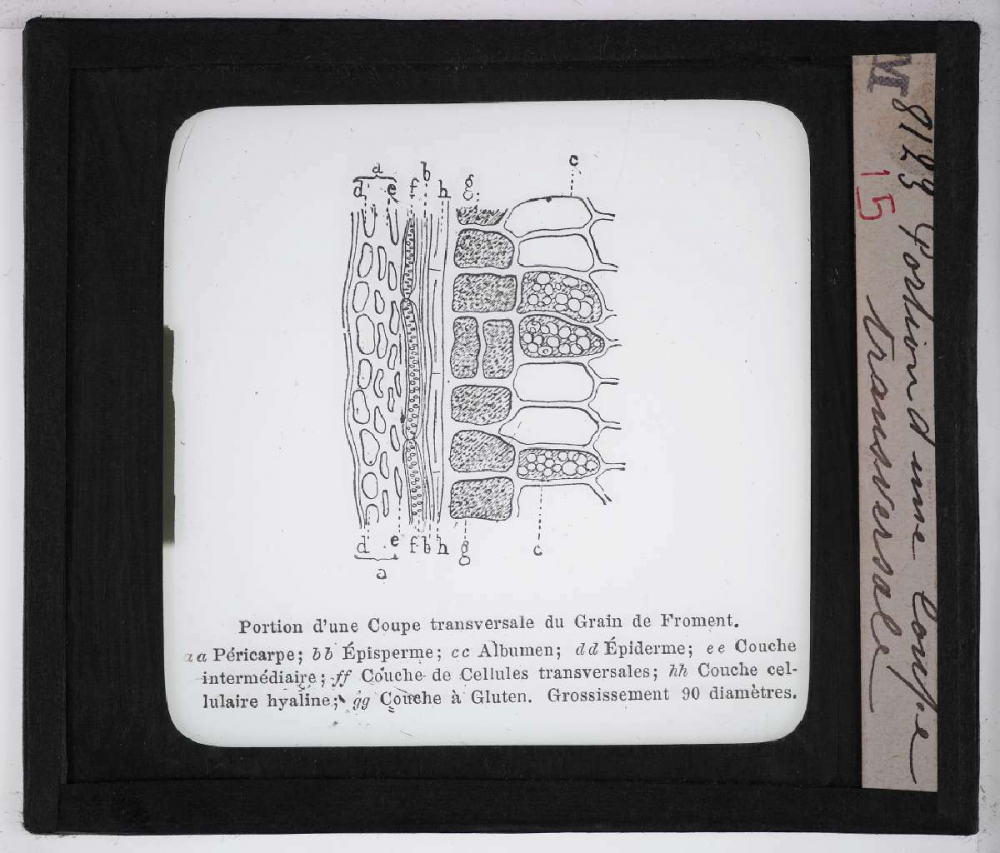 a
d e f b h g c
d e f b h g c
a
Portion d'une Coupe transversale du Grain de Froment.
aa Péricarpe; bb Épisperme; cc Albumen; dd Épiderme; ee Couche
intermédiaire; ff Couche de Cellules transversales; hh Couche cel-
lulaire hyaline; gg Couche à Gluten. Grossissement 90 diamètres.
VI
15
Portion d'une Coupe
transversale